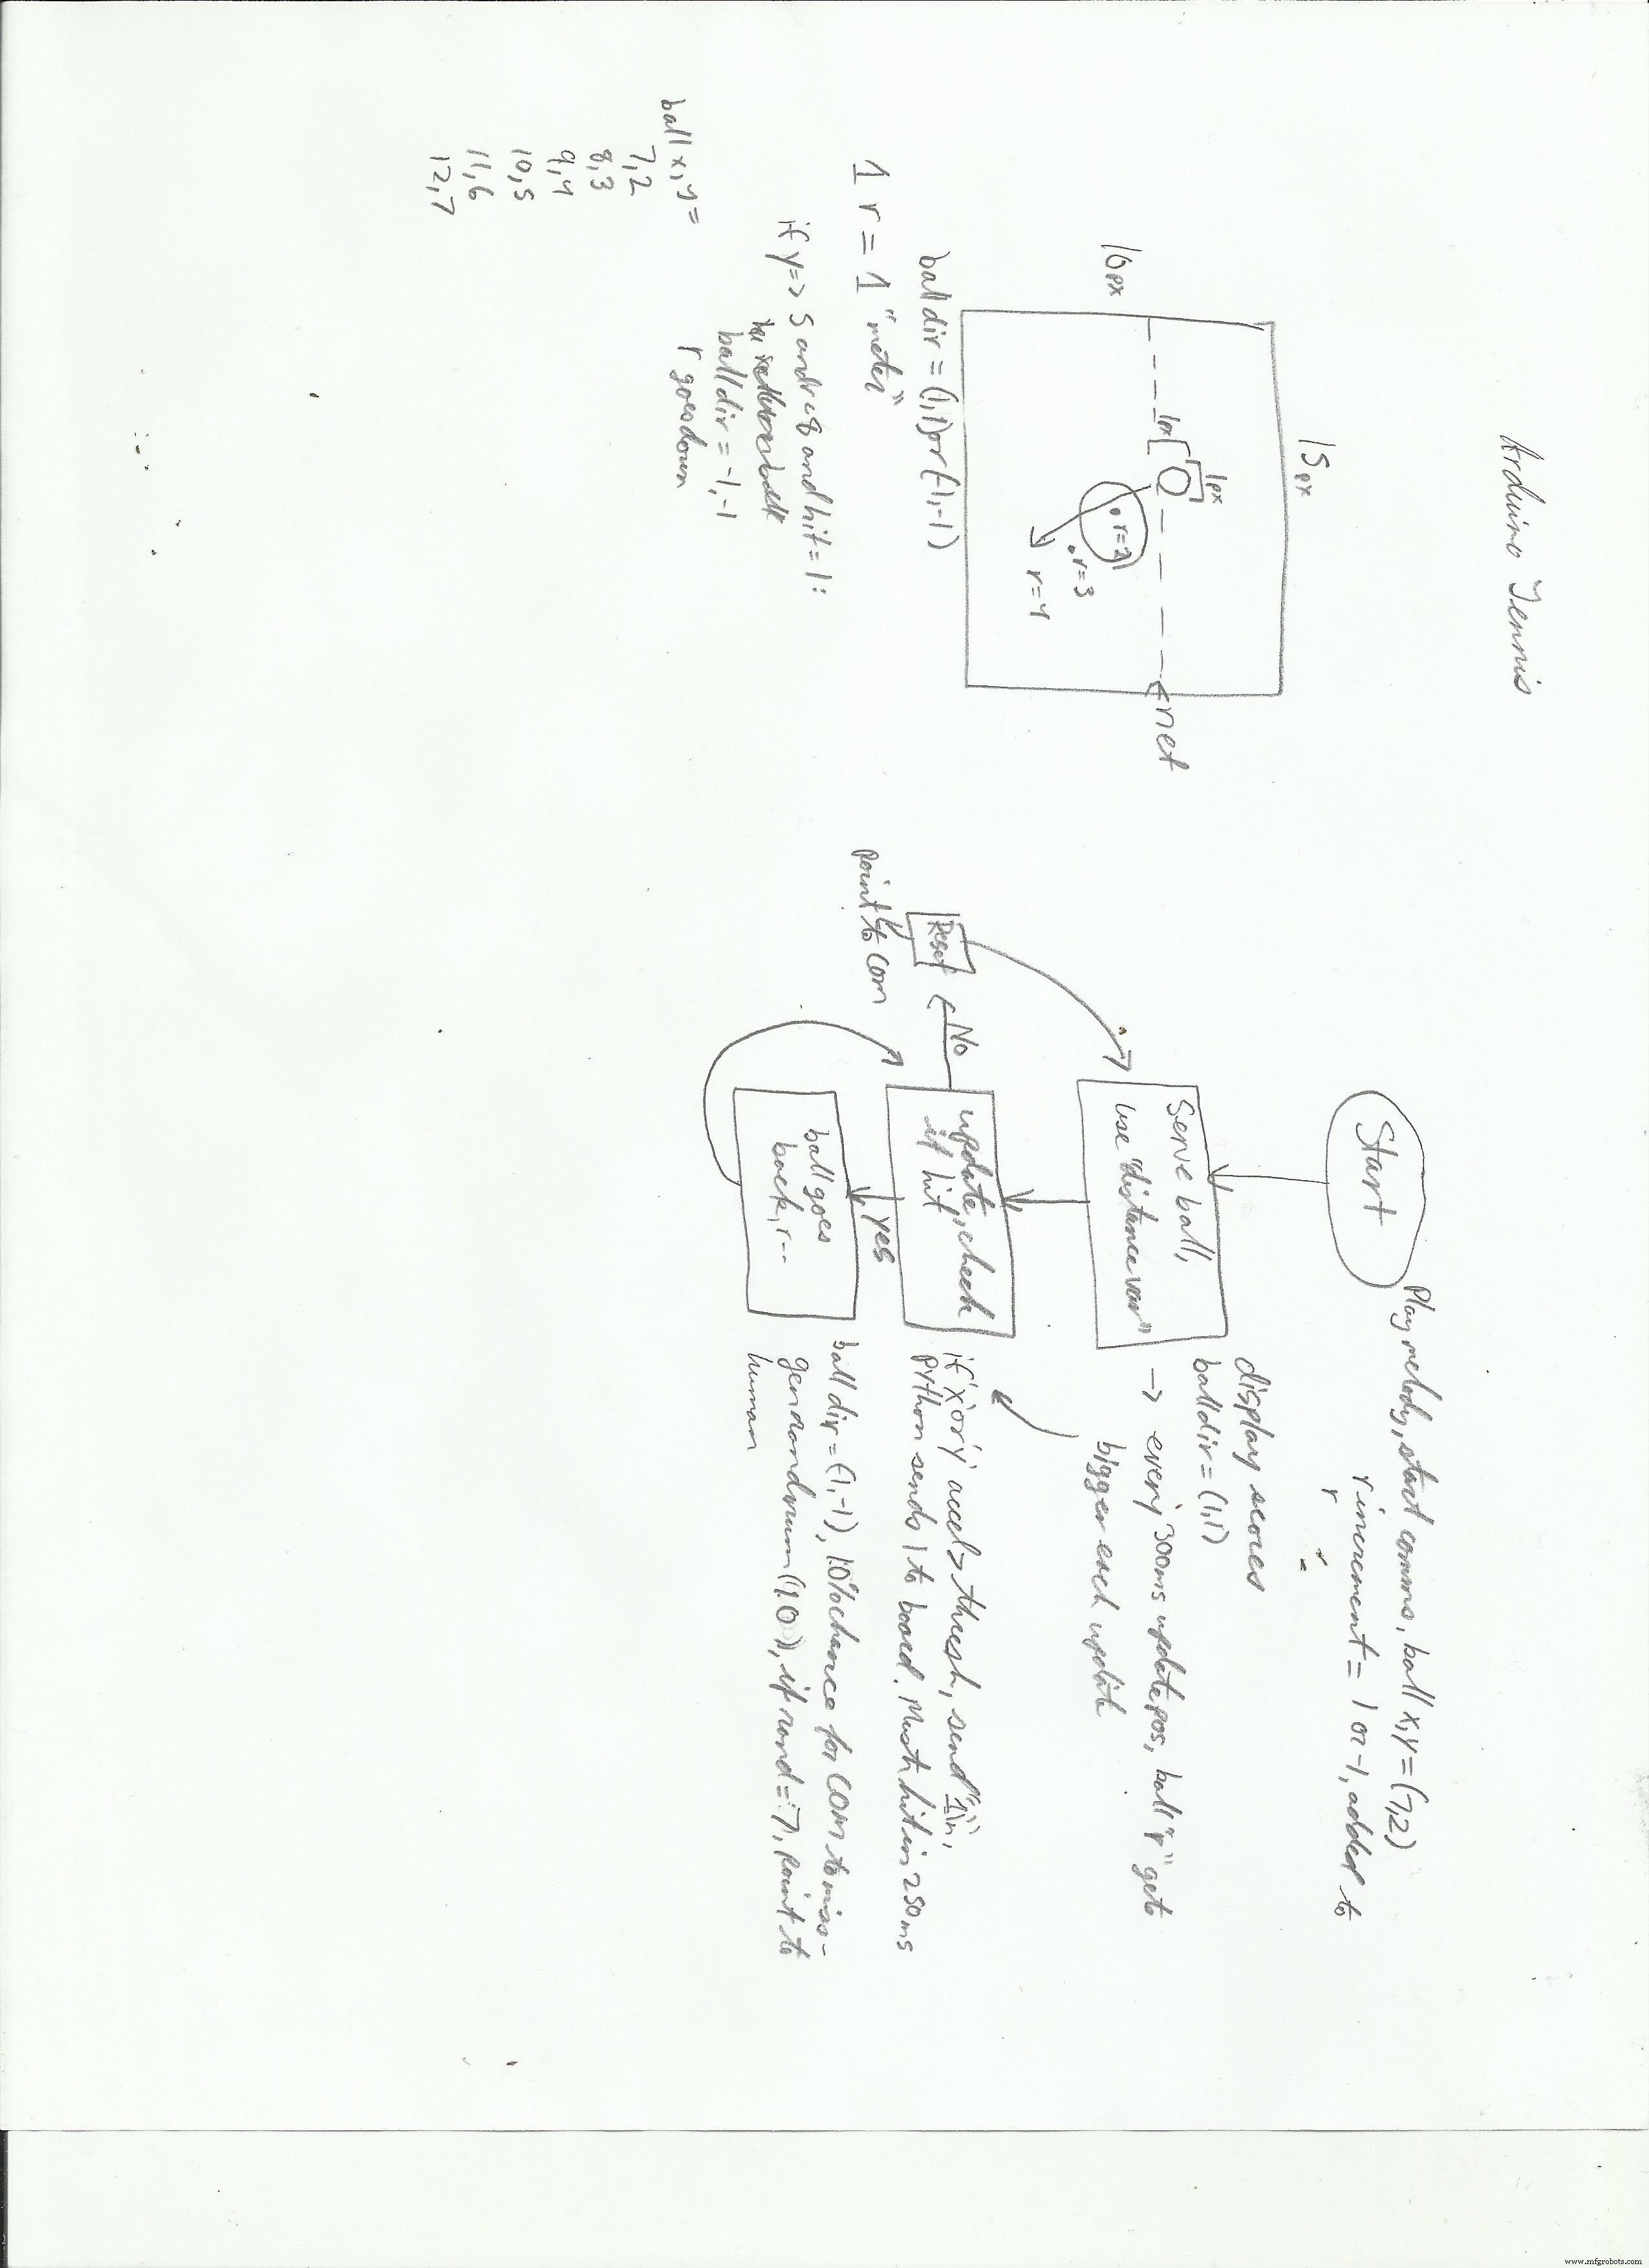 Arduino Tennis
15px
16px
1px
1px
net
r=2
r=3
r=4
ball dir = (1,1) or (-1,-1)
1 r = 1 "meter"
if y => 5 and r<8 and hit = 1:
ball dir = -1,-1
r goes down
ball x,y =
7,2
8,3
9,4
10,5
11,6
12,7
Start
Play melody, start comms, ball x,y = (7,2)
r increment = 1 or -1, added to
r
Serve ball,
use "distance var"
display scores
ball dir = (1,1)
→ every 300ms update pos, ball "r" gets
bigger each update
update, check
if hit
if 'x' or 'y' accel > thresh, send "1\n",
Python sends 1 to board. Must hit in 250ms
No
Reset
point to COM
Yes
ball goes
back, r--
ball dir = (-1,-1), 10% chance for COM to miss-
gen randnum (10), if rand = 7, point to
human
www.mfgrobots.com